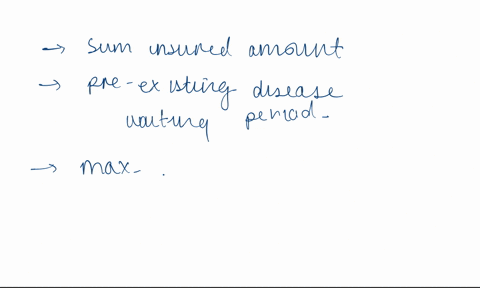 → sum insured amount
→ pre-existing disease
waiting period-
→ max- .